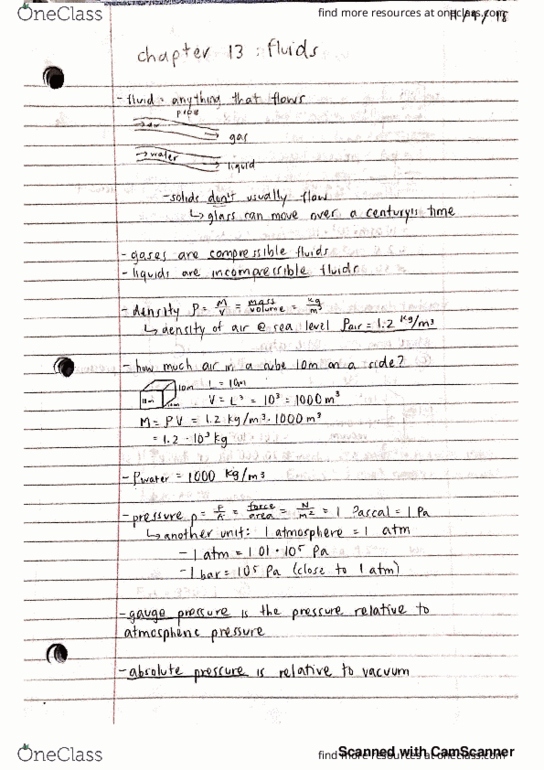 OneClass
find more resources at oneclass.com
chapter 13 : fluids
- fluid = anything that flows
pipe
→ air →
gas
→ water →
liquid
- solids don't usually flow
↳ glass can move over a century's time
- gases are compressible fluids
- liquids are incompressible fluids
- density ρ = M/V = mass/volume = kg/m³
↳ density of air @ sea level ρair = 1.2 kg/m³
- how much air in a cube 10m on a side?
10m L = 10m
10m 10m V = L³ = 10³ = 1000 m³
M = ρV = 1.2 kg/m³ · 1000 m³
= 1.2 · 10³ kg
- ρwater = 1000 kg/m³
- pressure p = F/A = force/area = N/m² = 1 Pascal = 1 Pa
↳ another unit: 1 atmosphere = 1 atm
- 1 atm = 1.01 · 10⁵ Pa
- 1 bar = 10⁵ Pa (close to 1 atm)
- gauge pressure is the pressure relative to
atmospheric pressure
- absolute pressure is relative to vacuum
OneClass
find more resources at oneclass.com
Scanned with CamScanner